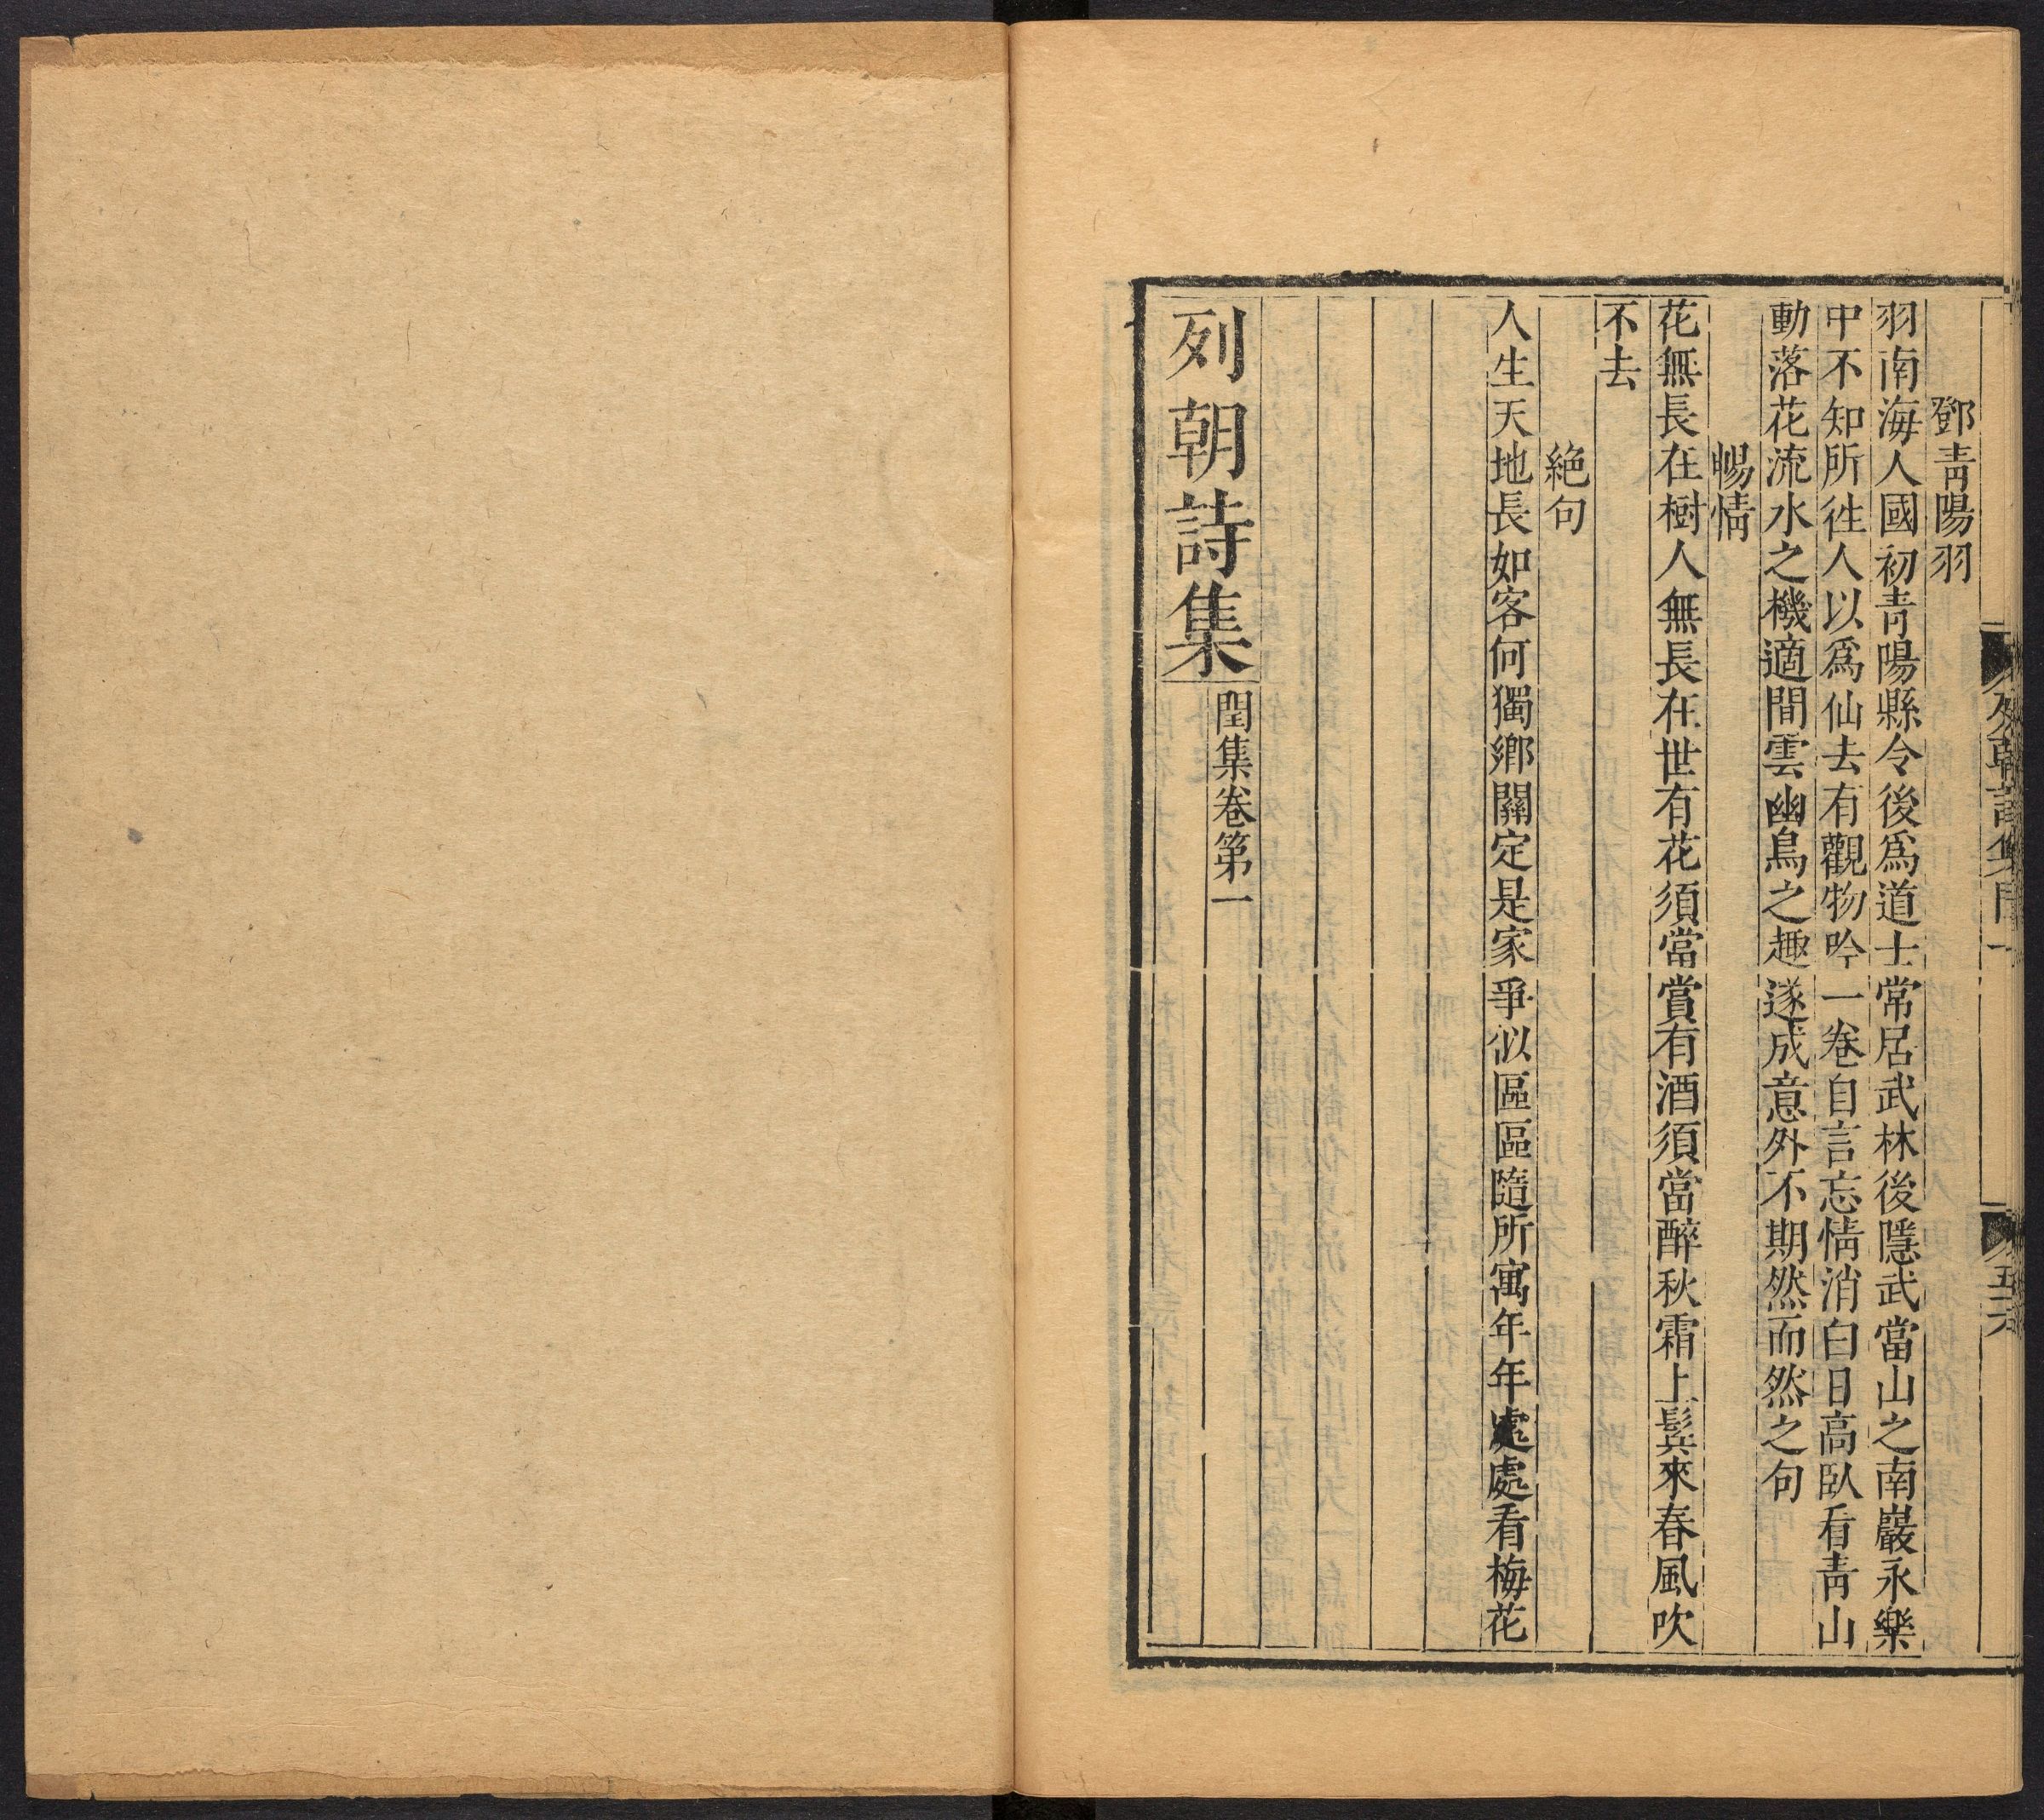 列朝詩集閏一
五六
鄧青陽羽
羽南海人國初青陽縣令後爲道士常居武林後隱武當山之南巖永樂
中不知所徃人以爲仙去有觀物吟一卷自言忘情消白日高臥看青山
動落花流水之機適閒雲幽鳥之趣遂成意外不期然而然之句
暢情
花無長在樹人無長在世有花須當賞有酒須當醉秋霜上鬂來春風吹
不去
絶句
人生天地長如客何獨鄉關定是家爭似區區隨所寓年年處處看梅花
列朝詩集
閏集卷第一